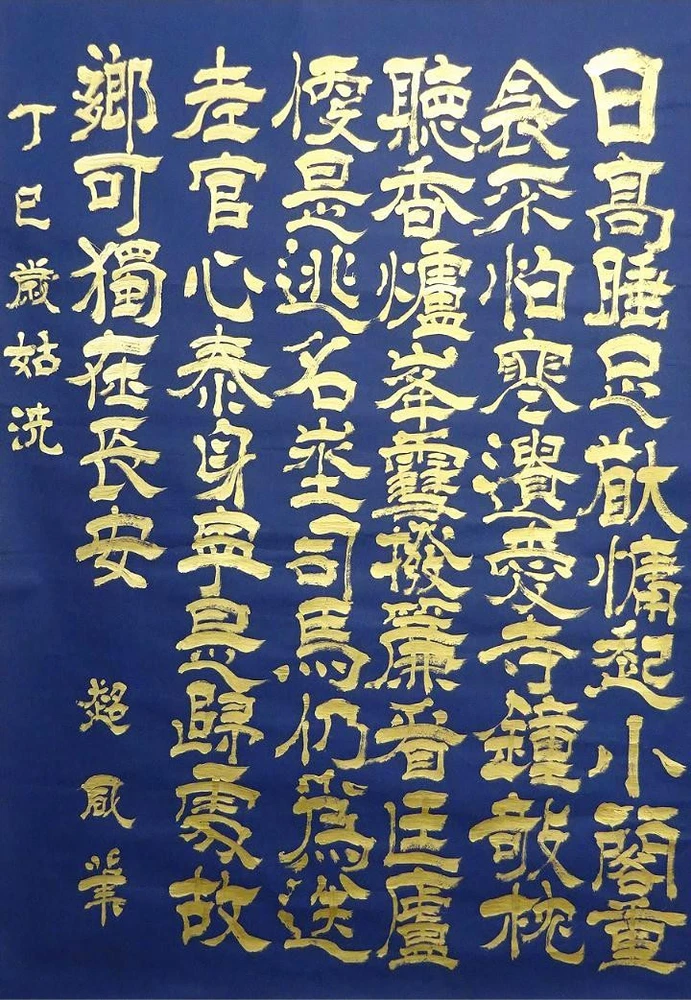 日高睡足猷慵起小閣重
衾不怕寒遺愛寺鐘敧枕
聽香爐峯雪撥簾看匡廬
便是逃名埊司馬仍爲送
老官心泰身寧是歸處故
鄉可獨在長安
筆
丁巳歲姑洗